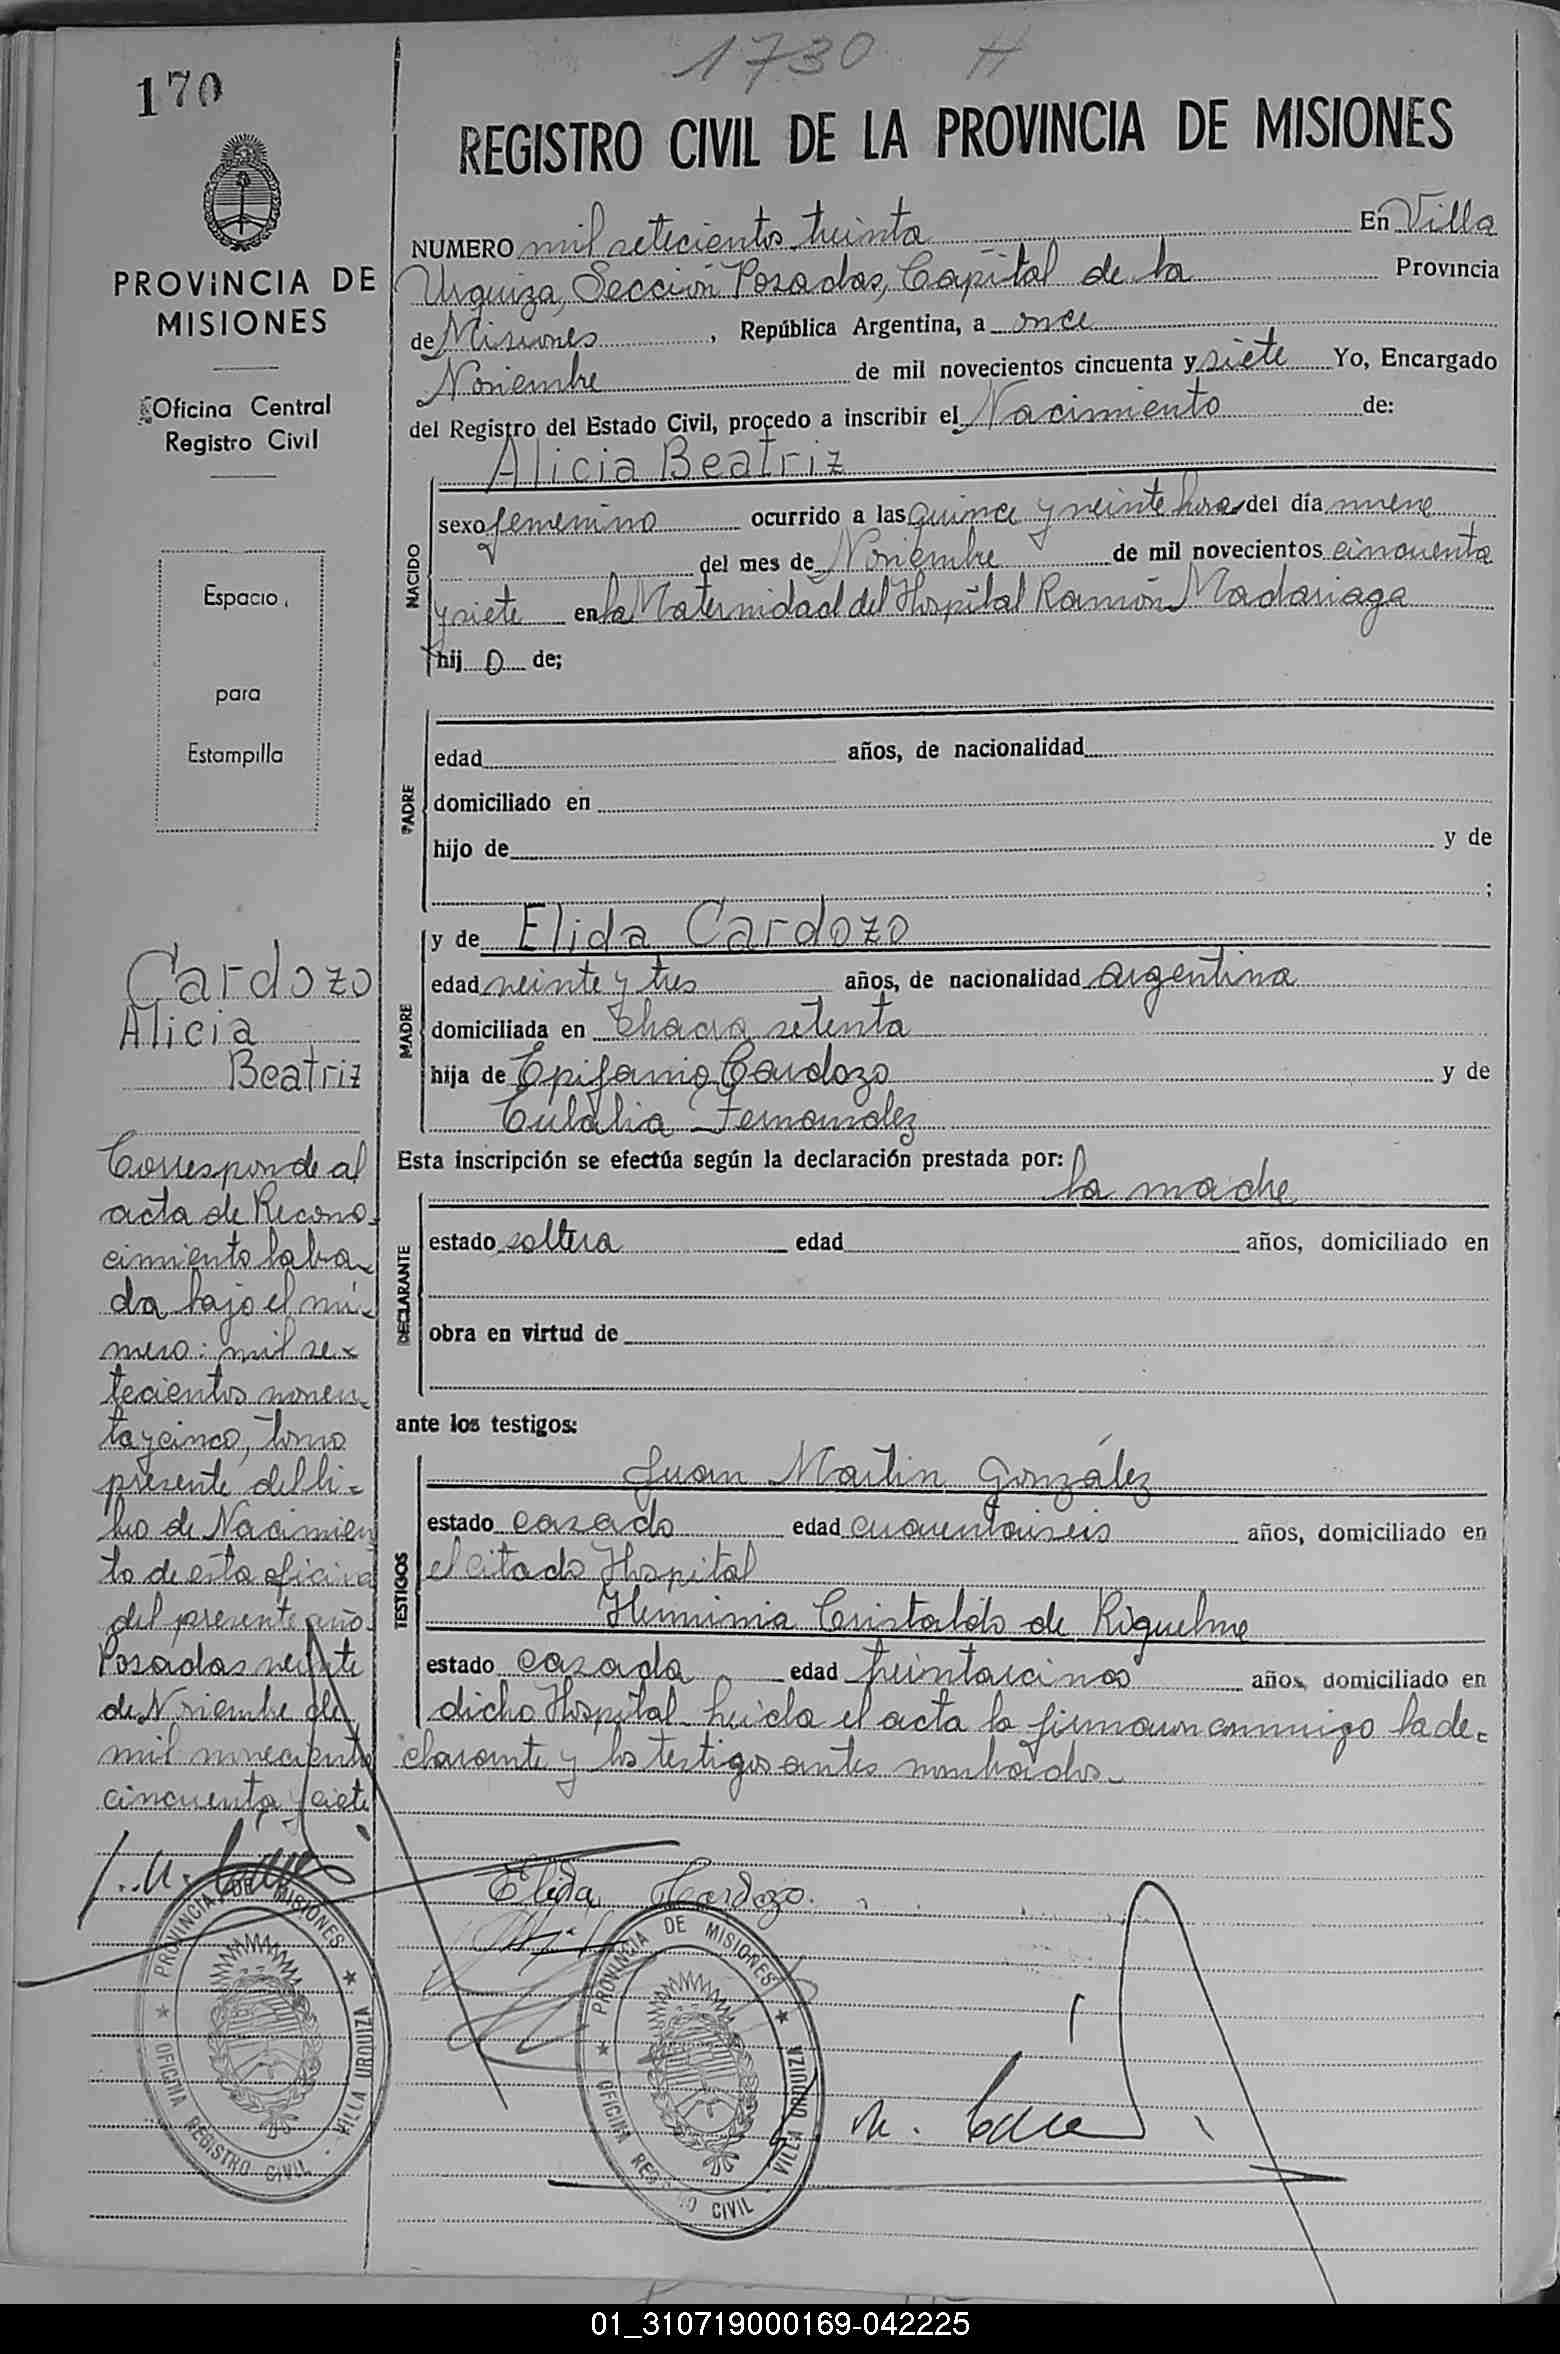 1730 H
170
REGISTRO CIVIL DE LA PROVINCIA DE MISIONES
PROVINCIA DE
MISIONES
Oficina Central
Registro Civil
Espacio
para
Estampilla
NUMERO mil setecientos treinta En Villa
Urquiza, Sección Posadas, Capital de la Provincia
de Misiones, República Argentina, a once
Noviembre de mil novecientos cincuenta y siete Yo, Encargado
del Registro del Estado Civil, procedo a inscribir el Nacimiento de:
Alicia Beatriz
NACIDO
sexo femenino ocurrido a las quince y veinte horas del día nueve
del mes de Noviembre de mil novecientos cincuenta
y siete en la Maternidad del Hospital Ramón Madariaga
hij a de;
PADRE
edad años, de nacionalidad
domiciliado en
hijo de y de
;
MADRE
y de Elida Cardozo
edad veinte y tres años, de nacionalidad argentina
domiciliada en chacra setenta
hija de Epifanio Cardozo y de
Eulalia Fernandez
Esta inscripción se efectúa según la declaración prestada por:
la madre
DECLARANTE
estado soltera edad años, domiciliado en
obra en virtud de
ante los testigos:
TESTIGOS
Juan Martin González
estado casado edad cuarentaiseis años, domiciliado en
el citado Hospital
Herminia Cristaldo de Riquelme
estado casada edad treintaicinco años, domiciliado en
dicho Hospital. Leída el acta la firmaron conmigo la de-
clarante y los testigos antes nombrados.
Elida Cardozo.
Cardozo
Alicia
Beatriz
Corresponde al
acta de Recono-
cimiento labra-
da bajo el nú-
mero: mil se-
tecientos noven-
ta y cinco, tomo
presente del li-
bro de Nacimien
to de esta oficina
del presente año.
Posadas veinte
de Noviembre de
mil novecientos
cincuenta y siete
PROVINCIA DE MISIONES
OFICINA REGISTRO CIVIL - VILLA URQUIZA
PROVINCIA DE MISIONES
OFICINA REGISTRO CIVIL - VILLA URQUIZA
01_310719000169-042225